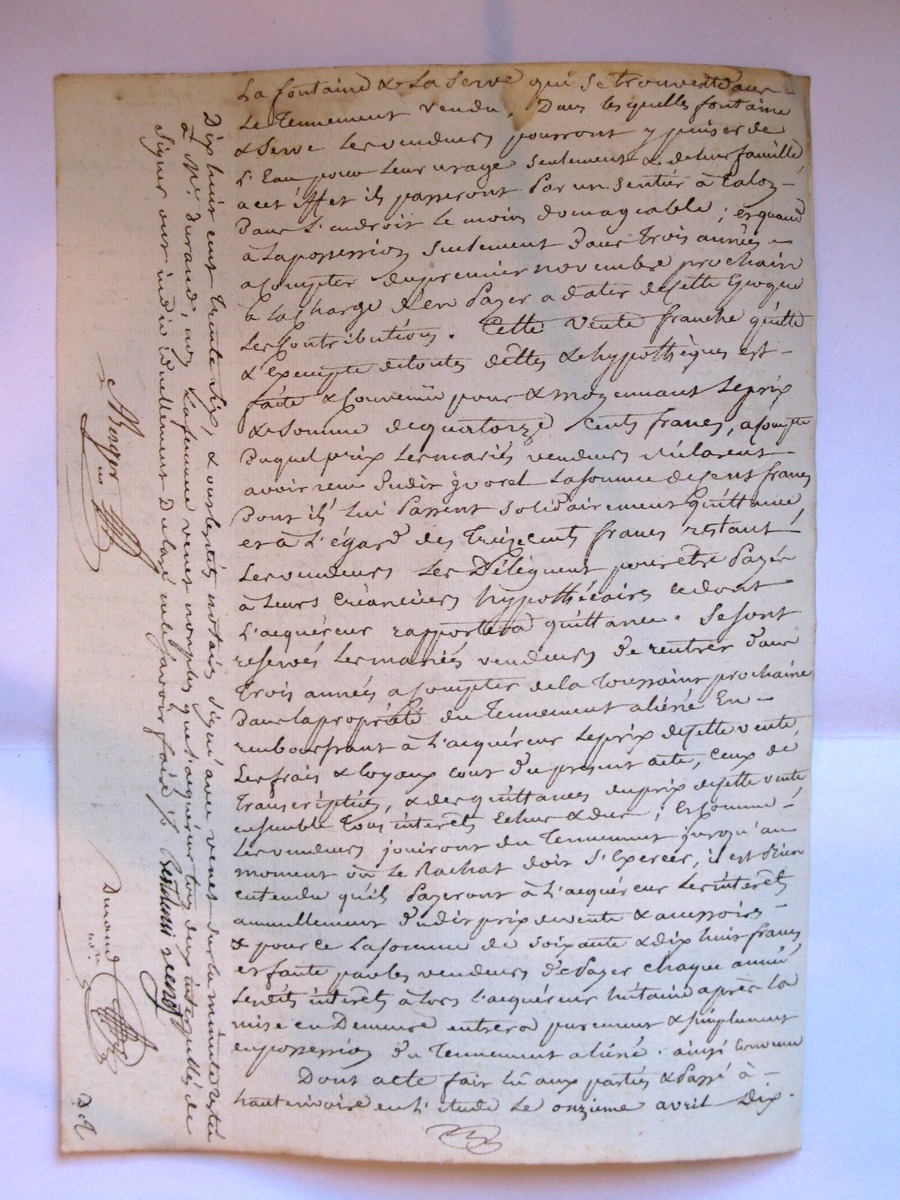 La fontaine & La Serve qui se trouvent dans
Le Tennement vendu, Dans lesquelles fontaine
& Serve Les vendeurs pourront y puiser de
L'Eau pour Leur usage seulement & de leur famille
a cet effet ils passeront Par un sentier à Taloz
Dans L'endroit Le moins domageable ; et quand
à La possession seulement Dans Trois années
a compter du premier novembre prochain
à La charge d'en Payer a dater de cette Epoque
Les Contributions. Cette vente franche quitte
& Exempte de toutes dettes & hypothèques est
faite & Convenue pour & moyennant Le prix
& Somme de quatorze Cents francs, a compte
Duquel prix Les mariés vendeurs déclarent
avoir reçu dudit La somme de Cent francs
Dont ils Lui Passent solidairement Quittance
et à L'égard des Treize cents francs restant
Les vendeurs Les Délèguent pour être Payés
à Leurs Créanciers hypothécaires ce dont
L'acquéreur rapportera quittance. Se sont
reservés Les mariés vendeurs De rentrer dans
Trois années a compter de la Toussaint prochaine
Dans la propriété du Tennement aliéné En
remboursant à L'acquéreur Le prix de cette vente
Les frais & loyaux cout du present acte, Ceux de
Transcription, & des quittances du prix de cette vente
ensemble Tous interets Echus & dus ; Et comme
Les vendeurs jouiront du Tennement jusqu'au
moment où Le Rachat doit s'Exercer, il est Bien
entendu qu'ils Payeront à L'acquéreur Les interets
annuellement dudit prix de vente & accessoires
& pour ce La somme de soixante & dix huit francs
et faute par les vendeurs de Payer chaque année
Lesdits interets à Lors L'acquéreur huitaine après La
mise en Demeure entrera purement & simplement
en possession du Tennement aliéné. ainsi convenu
Dont acte fait lu aux parties & Passé à
hauterivoire en L'étude Le onzieme avril Dix.
Dix huit cent Trente Six, & ont lesdits notaires signé avec venet sur la minute restée
à Mr. durand, non La femme venet non plus que L'acquéreur tous deux interpellés de
signer ont individuellement Declaré ne le savoir faire
Roger
Durand